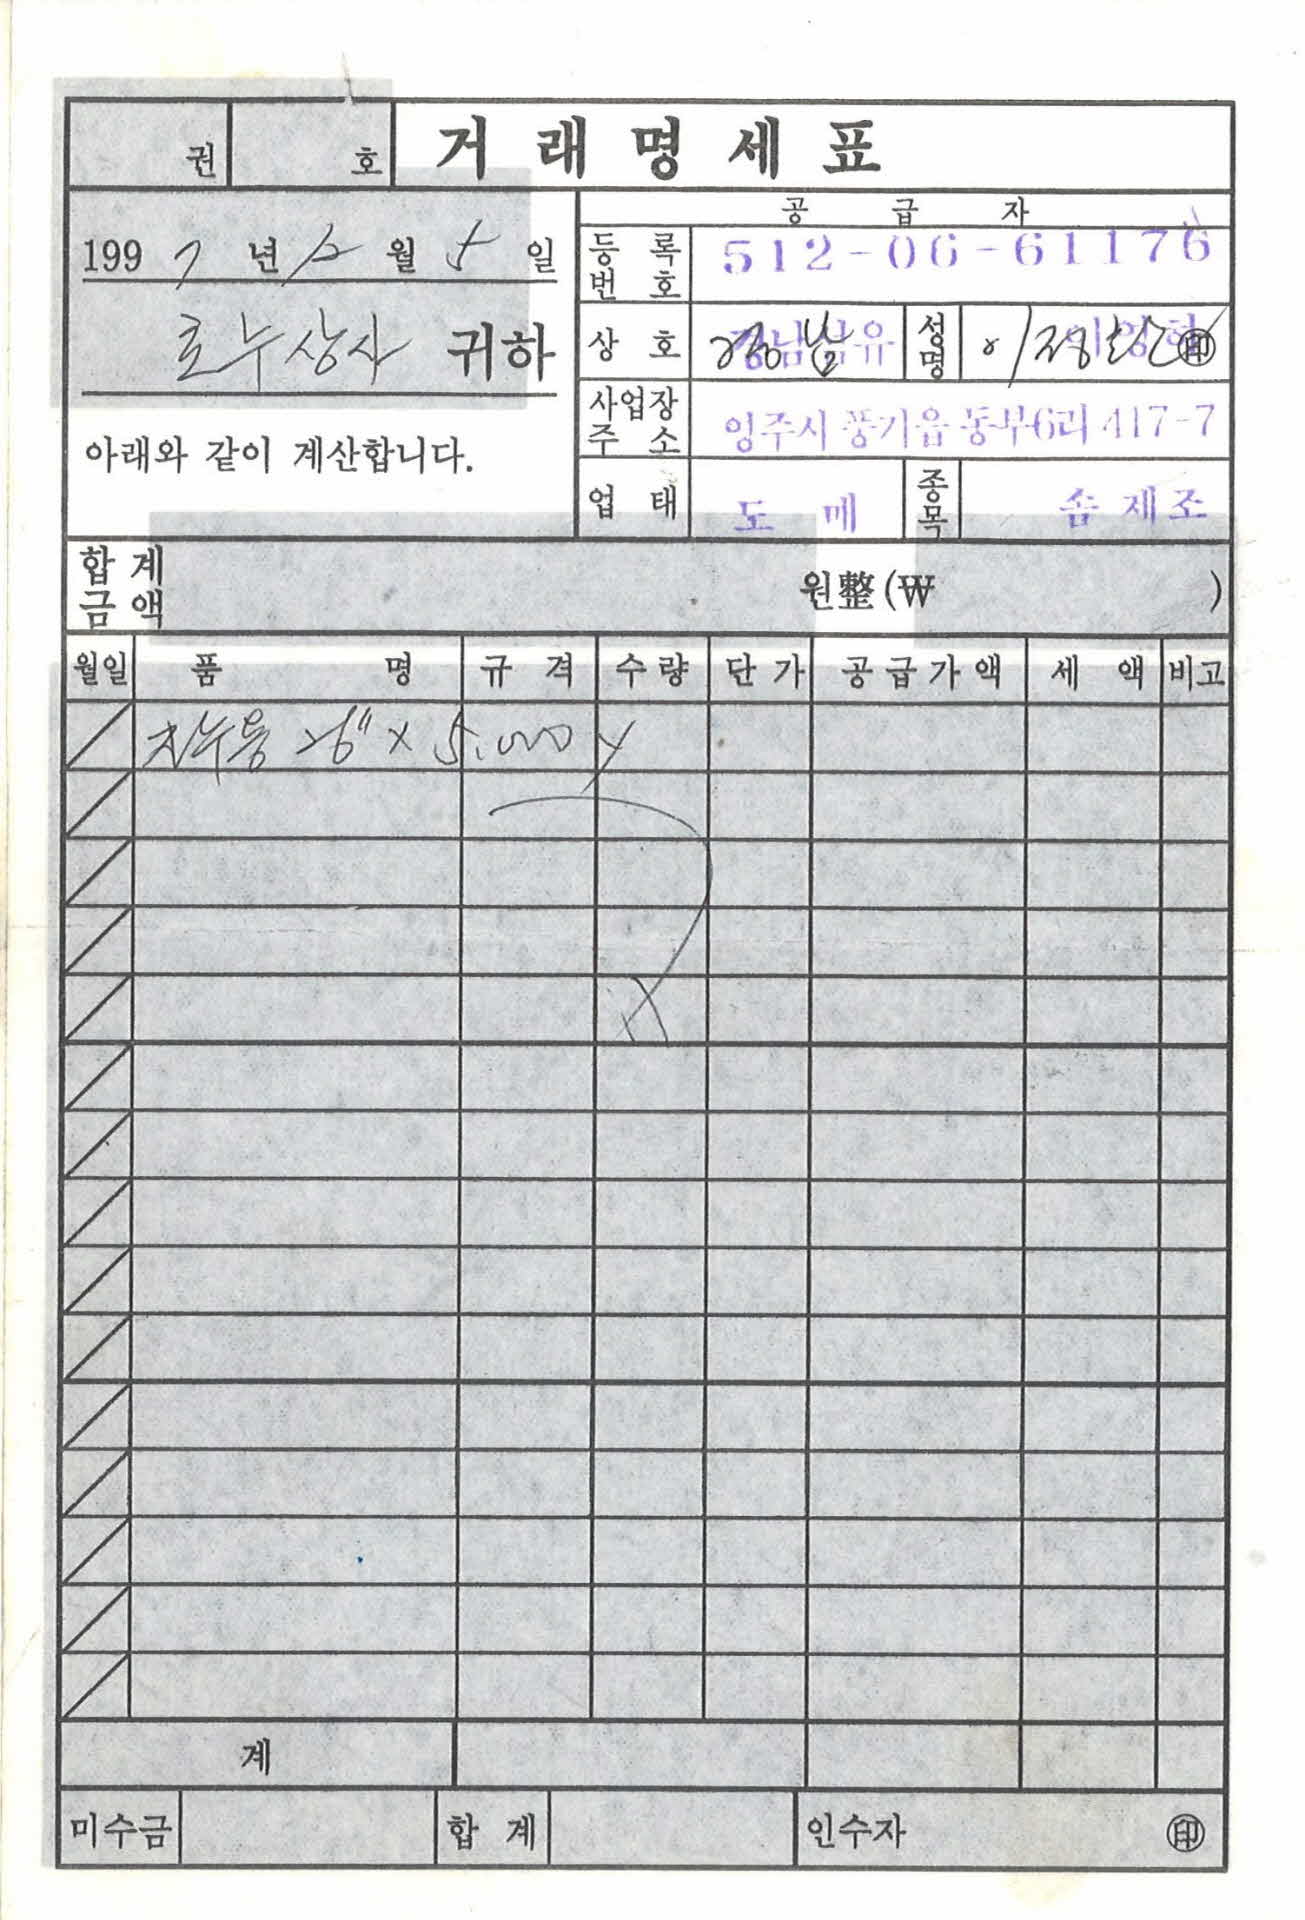 권 호 거래명세표
1997년 12월 5일
호수상사 귀하
아래와 같이 계산합니다.
공급자
등록번호 512-06-61176
상호 경남섬유 성명 이영혁 ㊞
사업장주소 영주시 풍기읍 동부6리 417-7
업태 도매 종목 솜제조
합계금액 원整(₩ )
월일 품명 규격 수량 단가 공급가액 세액 비고
26" x 5,000 y
계
미수금 합계 인수자 ㊞